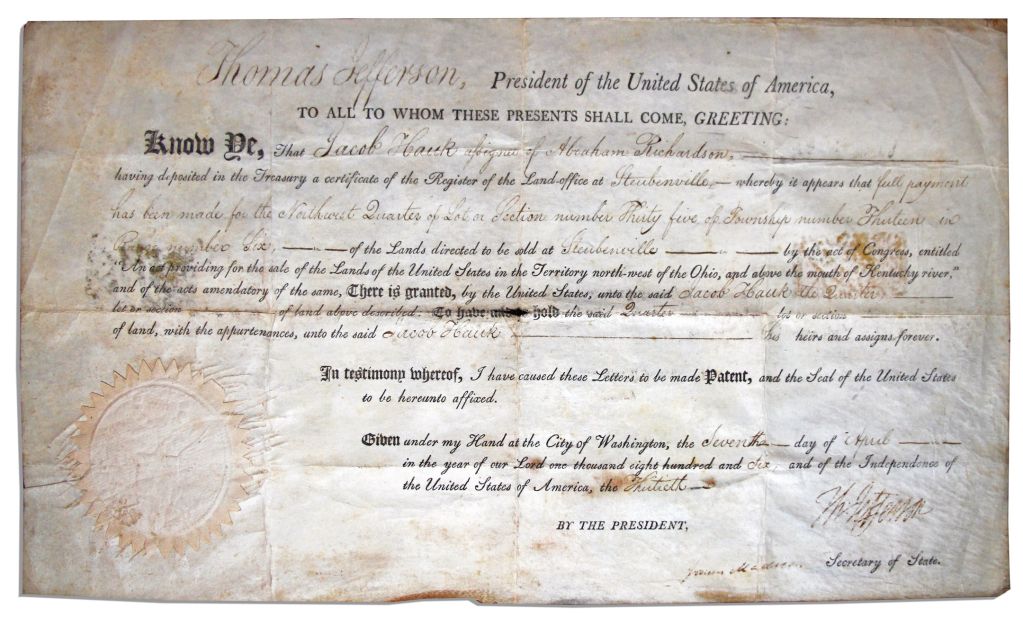 Thomas Jefferson, President of the United States of America,
TO ALL TO WHOM THESE PRESENTS SHALL COME, GREETING:
Know Ye, That Jacob Hauk assignee of Abraham Richardson,
having deposited in the Treasury a certificate of the Register of the Land-office at Steubenville whereby it appears that full payment
has been made for the Northwest Quarter of Lot or Section number Thirty five of Township number Thirteen in
Range number Six, of the Lands directed to be sold at Steubenville by the act of Congress, entitled
"An act providing for the sale of the Lands of the United States in the Territory north-west of the Ohio, and above the mouth of Kentucky river,"
and of the acts amendatory of the same, There is granted, by the United States, unto the said Jacob Hauk the Quarter
lot or section of land above described. To have and to hold the said Quarter lot or section
of land, with the appurtenances, unto the said Jacob Hauk his heirs and assigns forever.
In testimony whereof, I have caused these Letters to be made Patent, and the Seal of the United States
to be hereunto affixed.
Given under my Hand at the City of Washington, the Seventh day of April
in the year of our Lord one thousand eight hundred and Six, and of the Independence of
the United States of America, the Thirtieth
Th: Jefferson
BY THE PRESIDENT,
James Madison Secretary of State.